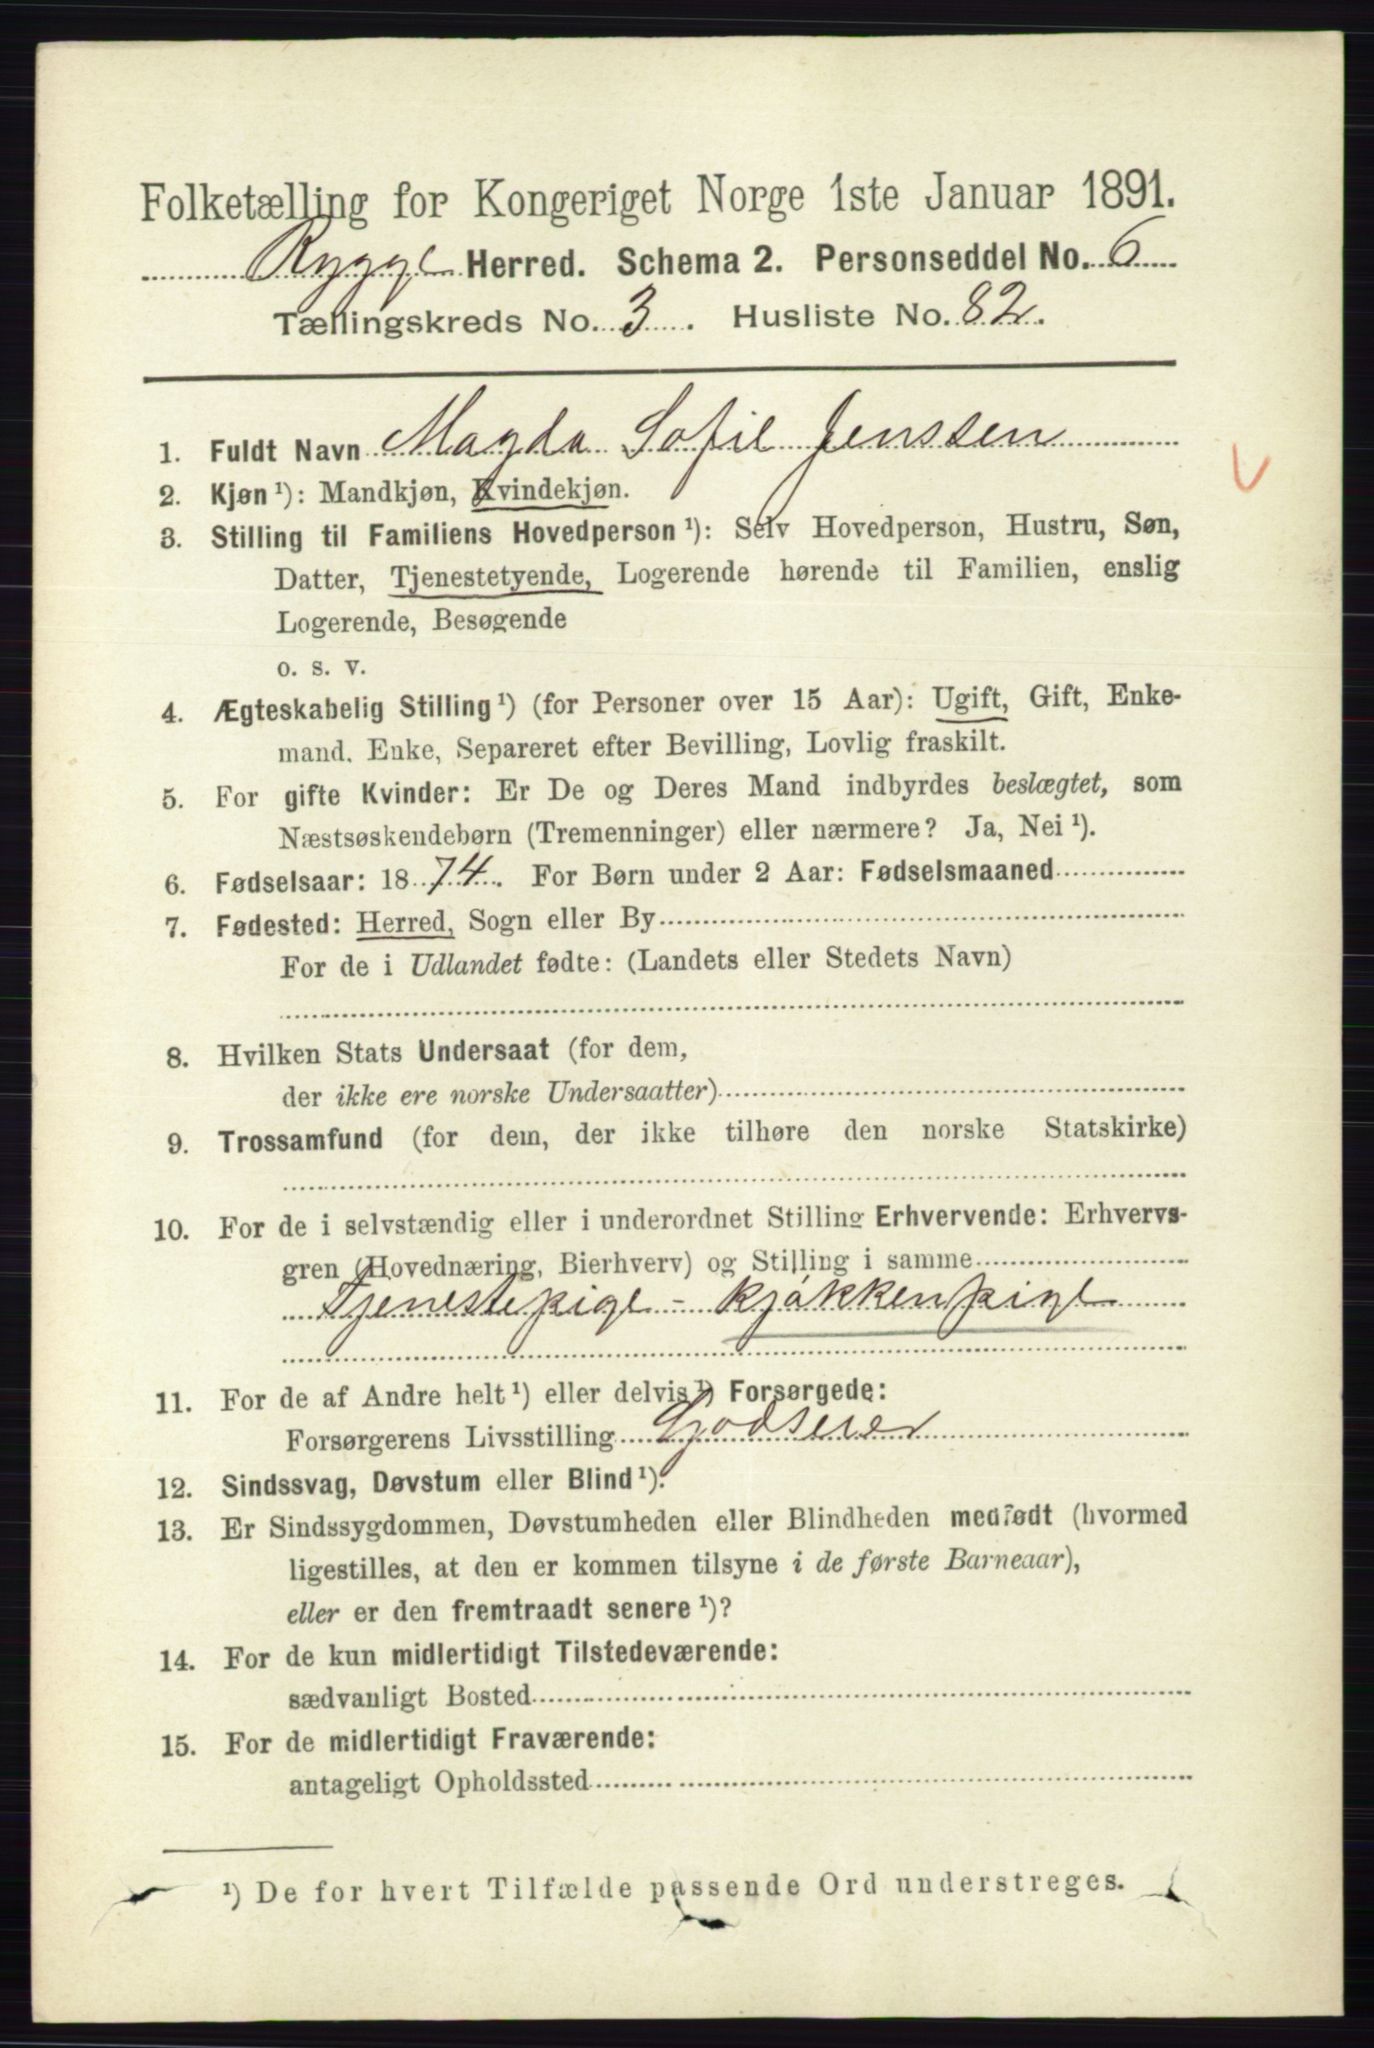 Folketælling for Kongeriget Norge 1ste Januar 1891.
Rygge Herred. Schema 2. Personseddel No. 6
Tællingskreds No. 3. Husliste No. 82.
1. Fuldt Navn Magda Sofie Jenssen
2. Kjøn ¹): Mandkjøn, Kvindekjøn.
3. Stilling til Familiens Hovedperson ¹): Selv Hovedperson, Hustru, Søn,
Datter, Tjenestetyende, Logerende hørende til Familien, enslig
Logerende, Besøgende
o. s. v.
4. Ægteskabelig Stilling ¹) (for Personer over 15 Aar): Ugift, Gift, Enke-
mand, Enke, Separeret efter Bevilling, Lovlig fraskilt.
5. For gifte Kvinder: Er De og Deres Mand indbyrdes beslægtet, som
Næstsøskendebørn (Tremenninger) eller nærmere? Ja, Nei ¹).
6. Fødselsaar: 1874. For Børn under 2 Aar: Fødselsmaaned
7. Fødested: Herred, Sogn eller By
For de i Udlandet fødte: (Landets eller Stedets Navn)
8. Hvilken Stats Undersaat (for dem,
der ikke ere norske Undersaatter)
9. Trossamfund (for dem, der ikke tilhøre den norske Statskirke)
10. For de i selvstændig eller i underordnet Stilling Erhvervende: Erhvervs-
gren (Hovednæring, Bierhverv) og Stilling i samme
Tjenestepige - Kjøkkenpige
11. For de af Andre helt ¹) eller delvis ¹) Forsørgede:
Forsørgerens Livsstilling Godseier
12. Sindssvag, Døvstum eller Blind ¹).
13. Er Sindssygdommen, Døvstumheden eller Blindheden medfødt (hvormed
ligestilles, at den er kommen tilsyne i de første Barneaar),
eller er den fremtraadt senere ¹)?
14. For de kun midlertidigt Tilstedeværende:
sædvanligt Bosted
15. For de midlertidigt Fraværende:
antageligt Opholdssted
¹) De for hvert Tilfælde passende Ord understreges.